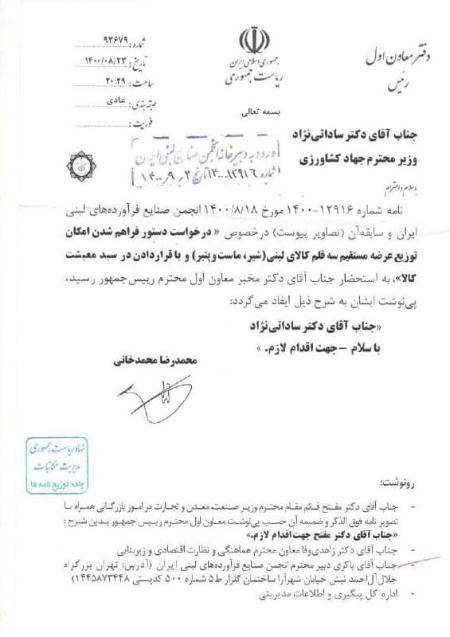 شماره: ۹۳۶۷۹
تاریخ: ۱۴۰۰/۰۸/۲۳
ساعت: ۲۰:۲۹
طبقه بندی: عادی
فوریت:
جمهوری اسلامی ایران
ریاست جمهوری
دفتر معاون اول
رئیس
بسمه تعالی
جناب آقای دکتر ساداتی‌نژاد
وزیر محترم جهاد کشاورزی
ورود به دبیرخانه انجمن صنایع لبنی ایران
شماره ۱۴۰۰-۱۲۹۱۶ تاریخ ۱۴۰۰/۹/۲
با سلام و احترام
نامه شماره ۱۲۹۱۶-۱۴۰۰ مورخ ۱۴۰۰/۸/۱۸ انجمن صنایع فرآورده‌های لبنی
ایران و سابقه آن (تصاویر پیوست) درخصوص «درخواست دستور فراهم شدن امکان
توزیع عرضه مستقیم سه قلم کالای لبنی(شیر، ماست و پنیر) و یا قراردادن در سبد معیشت
کالا»، به استحضار جناب آقای دکتر مخبر معاون اول محترم رییس‌جمهور رسید،
پی‌نوشت ایشان به شرح ذیل ایفاد می‌گردد:
«جناب آقای دکتر ساداتی‌نژاد
با سلام – جهت اقدام لازم.»
محمدرضا محمدخانی
نهاد ریاست جمهوری
مدیریت مکاتبات
واحد توزیع نامه ها
رونوشت:
- جناب آقای دکتر مفتح قائم مقام محترم وزیر صنعت معدن و تجارت در امور بازرگانی همراه با
تصویر نامه فوق الذکر و ضمیمه آن حسب پی‌نوشت معاون اول محترم رییس جمهور بدین شرح:
«جناب آقای دکتر مفتح جهت اقدام لازم.»
- جناب آقای دکتر زاهدی‌وفا معاون محترم هماهنگی و نظارت اقتصادی و زیربنایی
- جناب آقای باکری دبیر محترم انجمن صنایع فرآورده‌های لبنی ایران (آدرس: تهران بزرگراه
جلال آل‌احمد نبش خیابان شهرآرا ساختمان گلزار ط۵ شماره ۵۰۰ کدپستی ۱۴۴۵۸۷۳۴۴۸)
- اداره کل پیگیری و اطلاعات مدیریتی